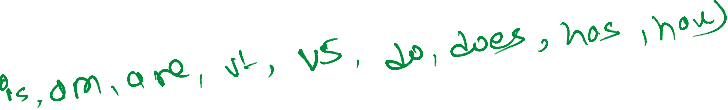 is, am, are, v1, v5, do, does, has, have